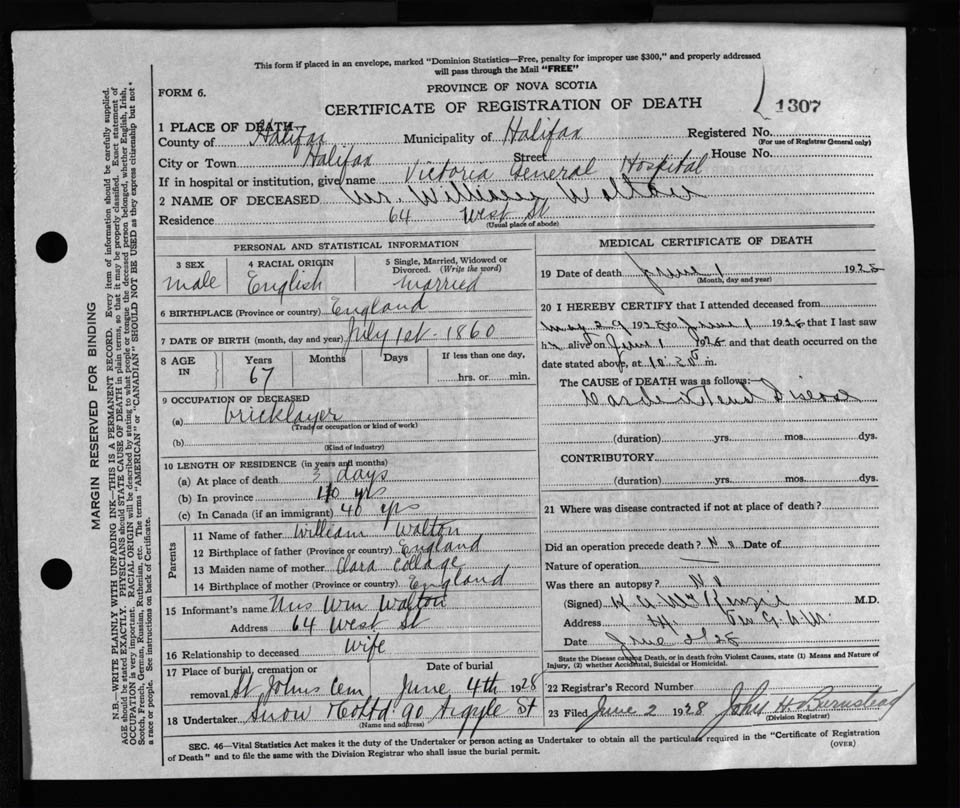 This form if placed in an envelope, marked "Dominion Statistics—Free, penalty for improper use $300," and properly addressed
will pass through the Mail "FREE"
FORM 6.
PROVINCE OF NOVA SCOTIA
CERTIFICATE OF REGISTRATION OF DEATH
1307
1 PLACE OF DEATH
County of Halifax Municipality of Halifax Registered No.
(For use of Registrar General only)
City or Town Halifax Street House No.
If in hospital or institution, give name Victoria General Hospital
2 NAME OF DECEASED Mr. William Walton
Residence 64 West St
(Usual place of abode)
PERSONAL AND STATISTICAL INFORMATION
3 SEX 4 RACIAL ORIGIN 5 Single, Married, Widowed or
Divorced. (Write the word)
male English married
6 BIRTHPLACE (Province or country) England
7 DATE OF BIRTH (month, day and year) July 1st - 1860
8 AGE IN Years Months Days If less than one day,
67 hrs. or min.
9 OCCUPATION OF DECEASED
(a) bricklayer
(Trade or occupation or kind of work)
(b)
(Kind of industry)
10 LENGTH OF RESIDENCE (in years and months)
(a) At place of death 3 days
(b) In province 40 yrs
(c) In Canada (if an immigrant) 40 yrs
Parents
11 Name of father William Walton
12 Birthplace of father (Province or country) England
13 Maiden name of mother Clara Collage
14 Birthplace of mother (Province or country) England
15 Informant's name Mrs Wm Walton
Address 64 West St
16 Relationship to deceased Wife
17 Place of burial, cremation or Date of burial
removal St Johns Cem June 4th 1928
18 Undertaker Snow & Co Ltd 90 Argyle St
(Name and address)
MEDICAL CERTIFICATE OF DEATH
19 Date of death June 1 1928
(Month, day and year)
20 I HEREBY CERTIFY that I attended deceased from
May 29 1928 to June 1 1928 that I last saw
h alive on June 1 1928 and that death occurred on the
date stated above, at 10.30 m.
The CAUSE OF DEATH was as follows:
Disease
(duration) yrs. mos. dys.
CONTRIBUTORY
(duration) yrs. mos. dys.
21 Where was disease contracted if not at place of death?
Did an operation precede death? No Date of
Nature of operation
Was there an autopsy? No
(Signed) K A McKenzie M.D.
Address
Date June 2/28
State the Disease causing Death, or in death from Violent Causes, state (1) Means and Nature of
Injury, (2) whether Accidental, Suicidal or Homicidal.
22 Registrar's Record Number
23 Filed June 2 1928 John H Barnstead
(Division Registrar)
SEC. 46—Vital Statistics Act makes it the duty of the Undertaker or person acting as Undertaker to obtain all the particulars required in the "Certificate of Registration
of Death" and to file the same with the Division Registrar who shall issue the burial permit. (OVER)
MARGIN RESERVED FOR BINDING
N.B.—WRITE PLAINLY WITH UNFADING INK—THIS IS A PERMANENT RECORD. Every item of information should be carefully supplied.
AGE should be stated EXACTLY. PHYSICIANS should STATE CAUSE OF DEATH in plain terms, so that it may be properly classified. Exact statement of
OCCUPATION is very important. RACIAL ORIGIN will be described by stating to what people or tongue the deceased person belonged, whether English, Irish,
Scotch, French, German, Russian, Ruthenian, etc. The terms "AMERICAN" or "CANADIAN" SHOULD NOT BE USED as they express citizenship but not
a race or people. See instructions on back of Certificate.